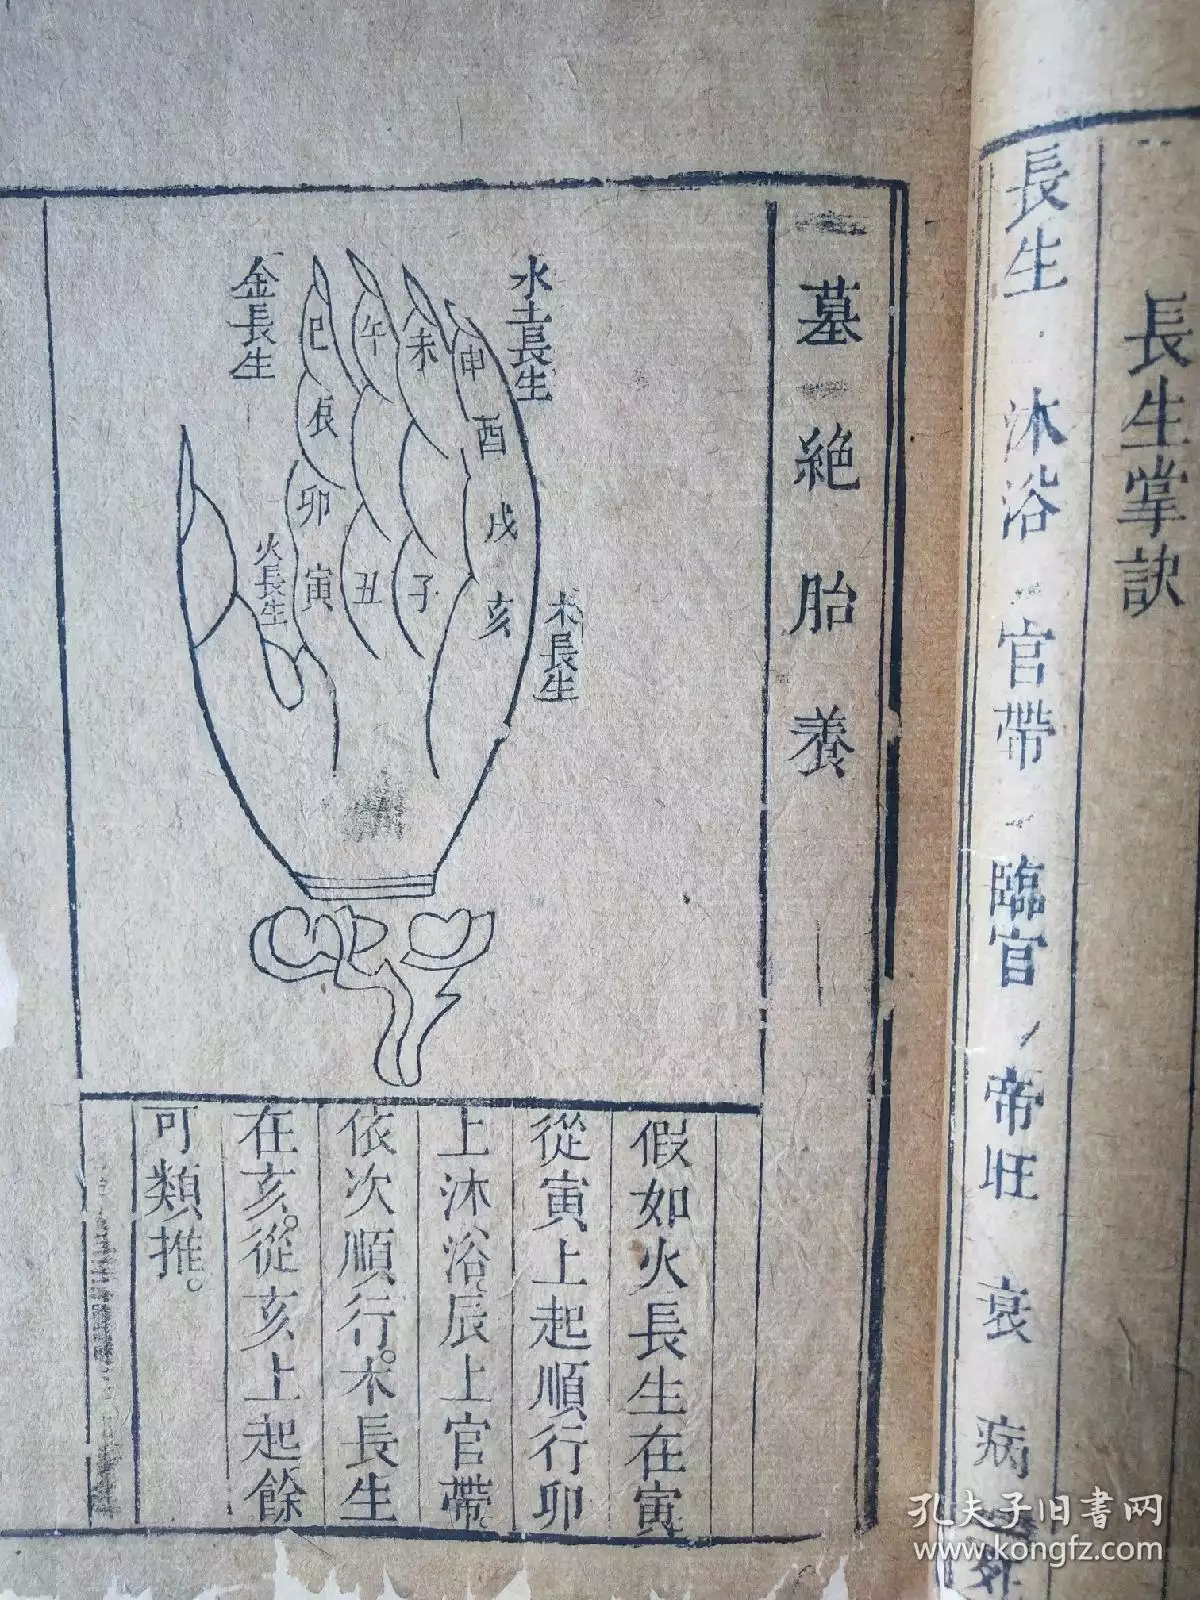 長生掌訣
長生 沐浴 官帶 臨官 帝旺 衰 病 死
墓 絕 胎 養
水土長生
金長生
火長生
木長生
巳 午 未 申
辰 酉
卯 戌
寅 丑 子 亥
假如火長生在寅
從寅上起順行卯
上沐浴、辰上官帶。
依次順行。木長生
在亥。從亥上起餘
可類推。
孔夫子旧书网
www.kongfz.com